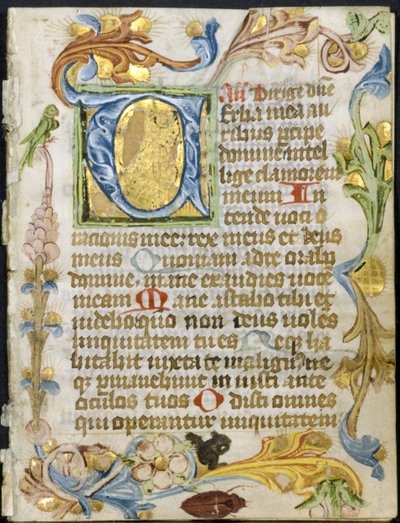 An̄ Dirige dn̄e
V Erba mea au
ribus ꝑcipe
domine intel
lige clamorem
meum In
tende uoci o
rationis mee: rex meus et deus
meus Quoniam ad te orabo
domine, mane exaudies uocē
meam Mane astabo tibi et
uidebo quo non deus uolēs
iniquitatem tu es Neqꝫ ha
bitabit iuxta te malignꝰ ne
qꝫ ꝑmanebunt iniusti ante
oculos tuos Odisti omnes
qui operantur iniquitatem